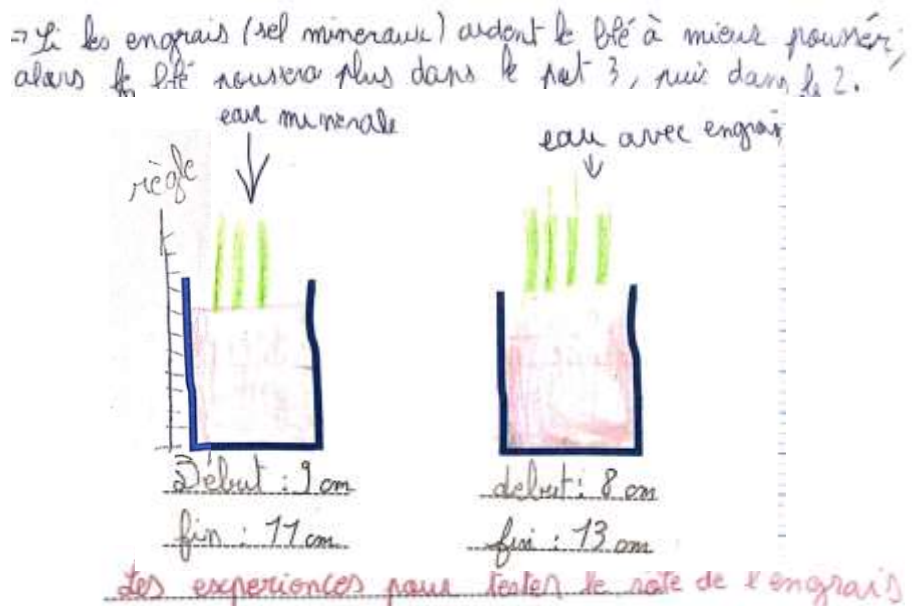 ⇒ Si les engrais (sel mineraux) aident le blé à mieux pousser,
alors le blé poussera plus dans le pot 3, puis dans le 2.
eau minerale
eau avec engrais
règle
Début : 9 cm
debut : 8 cm
fin : 11 cm
fin : 13 cm
Les experiences pour tester le role de l'engrais